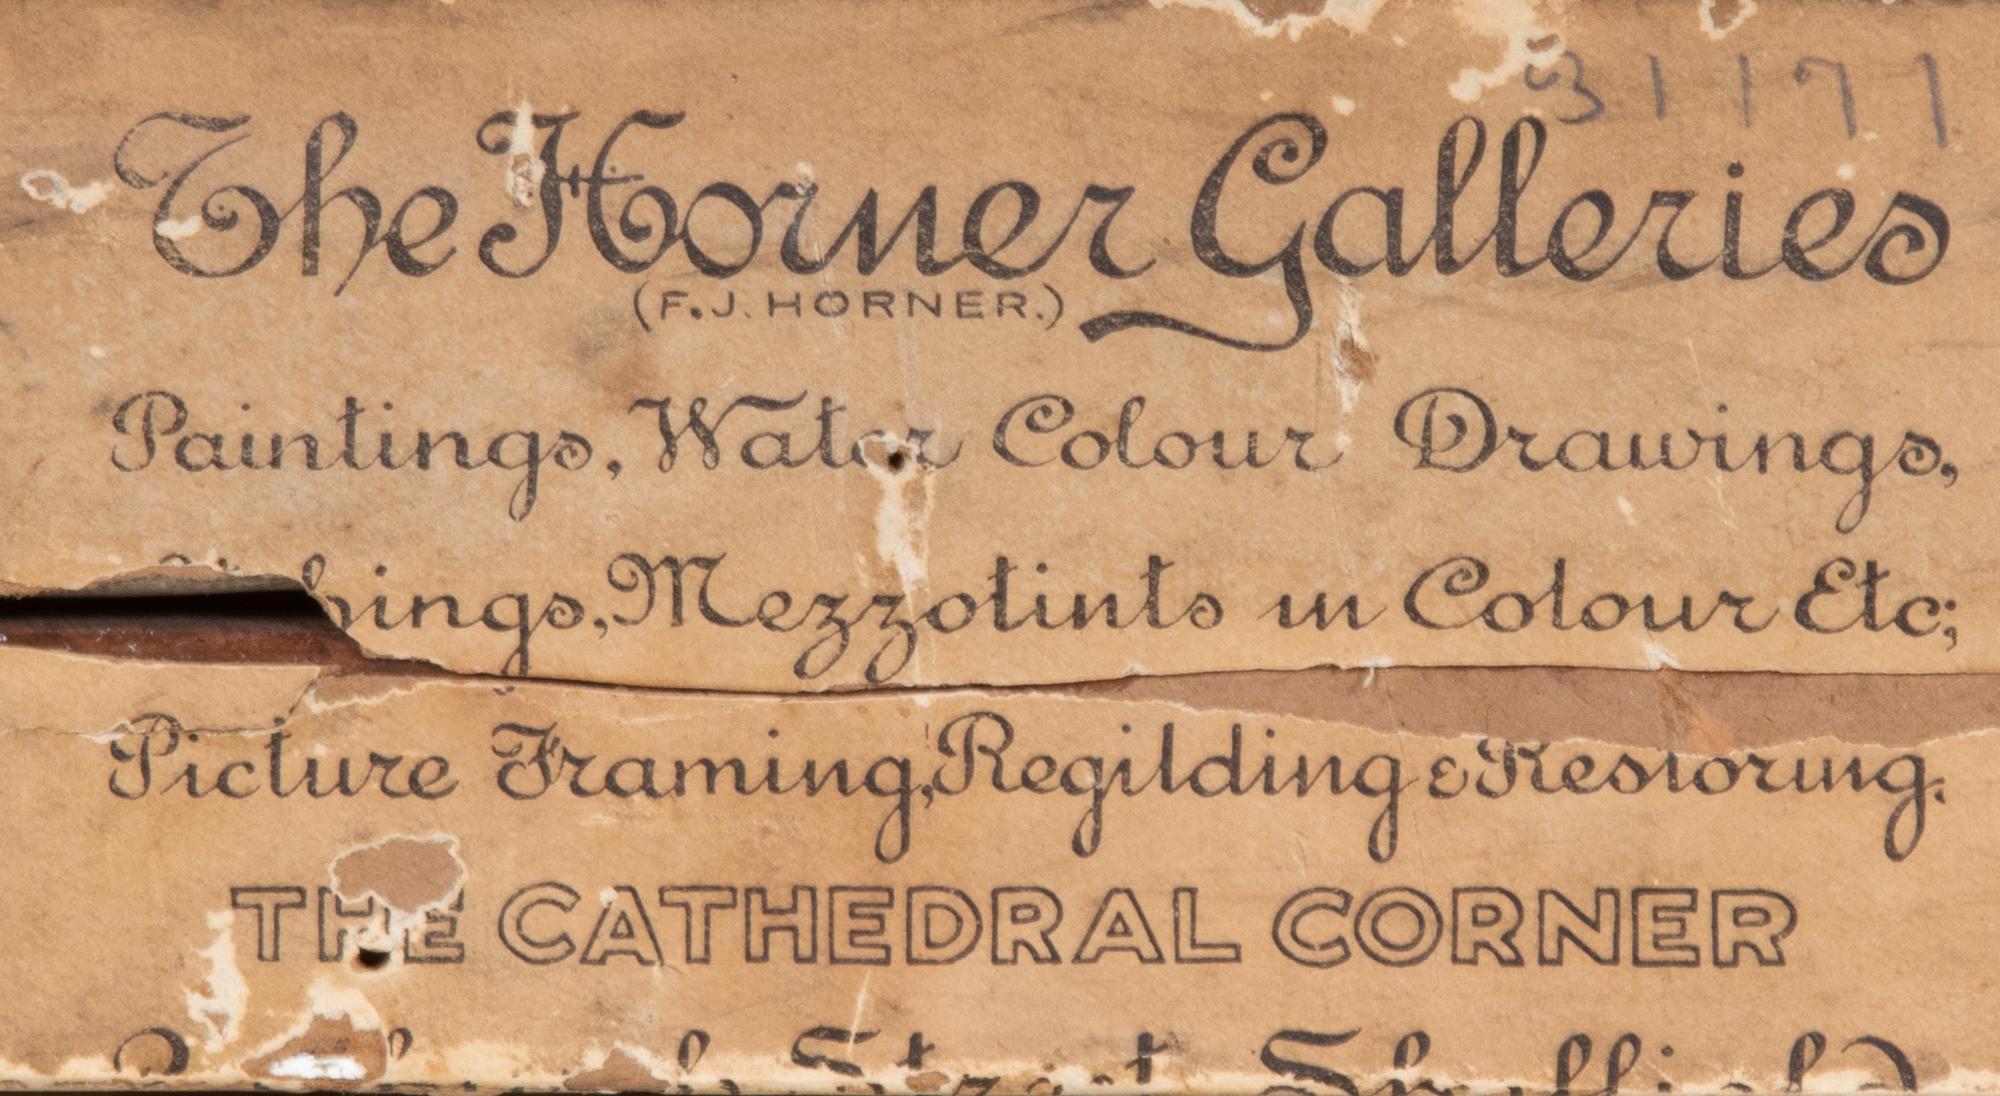 31171
The Horner Galleries
(F. J. HORNER.)
Paintings, Water Colour Drawings,
Mezzotints in Colour Etc;
Picture Framing, Regilding & Restoring.
THE CATHEDRAL CORNER
Street Sheffield